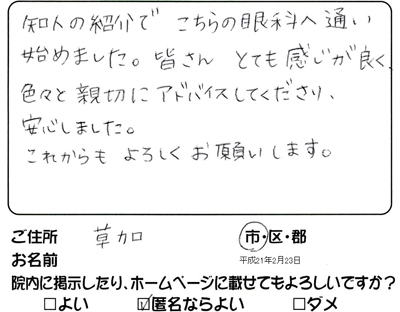 知人の紹介で こちらの眼科へ通い
始めました。皆さん とても感じが良く、
色々と親切にアドバイスしてくださり、
安心しました。
これからも よろしくお願いします。
ご住所 草加 市・区・郡
お名前 平成21年2月23日
院内に掲示したり、ホームページに載せてもよろしいですか？
□よい ☑匿名ならよい □ダメ